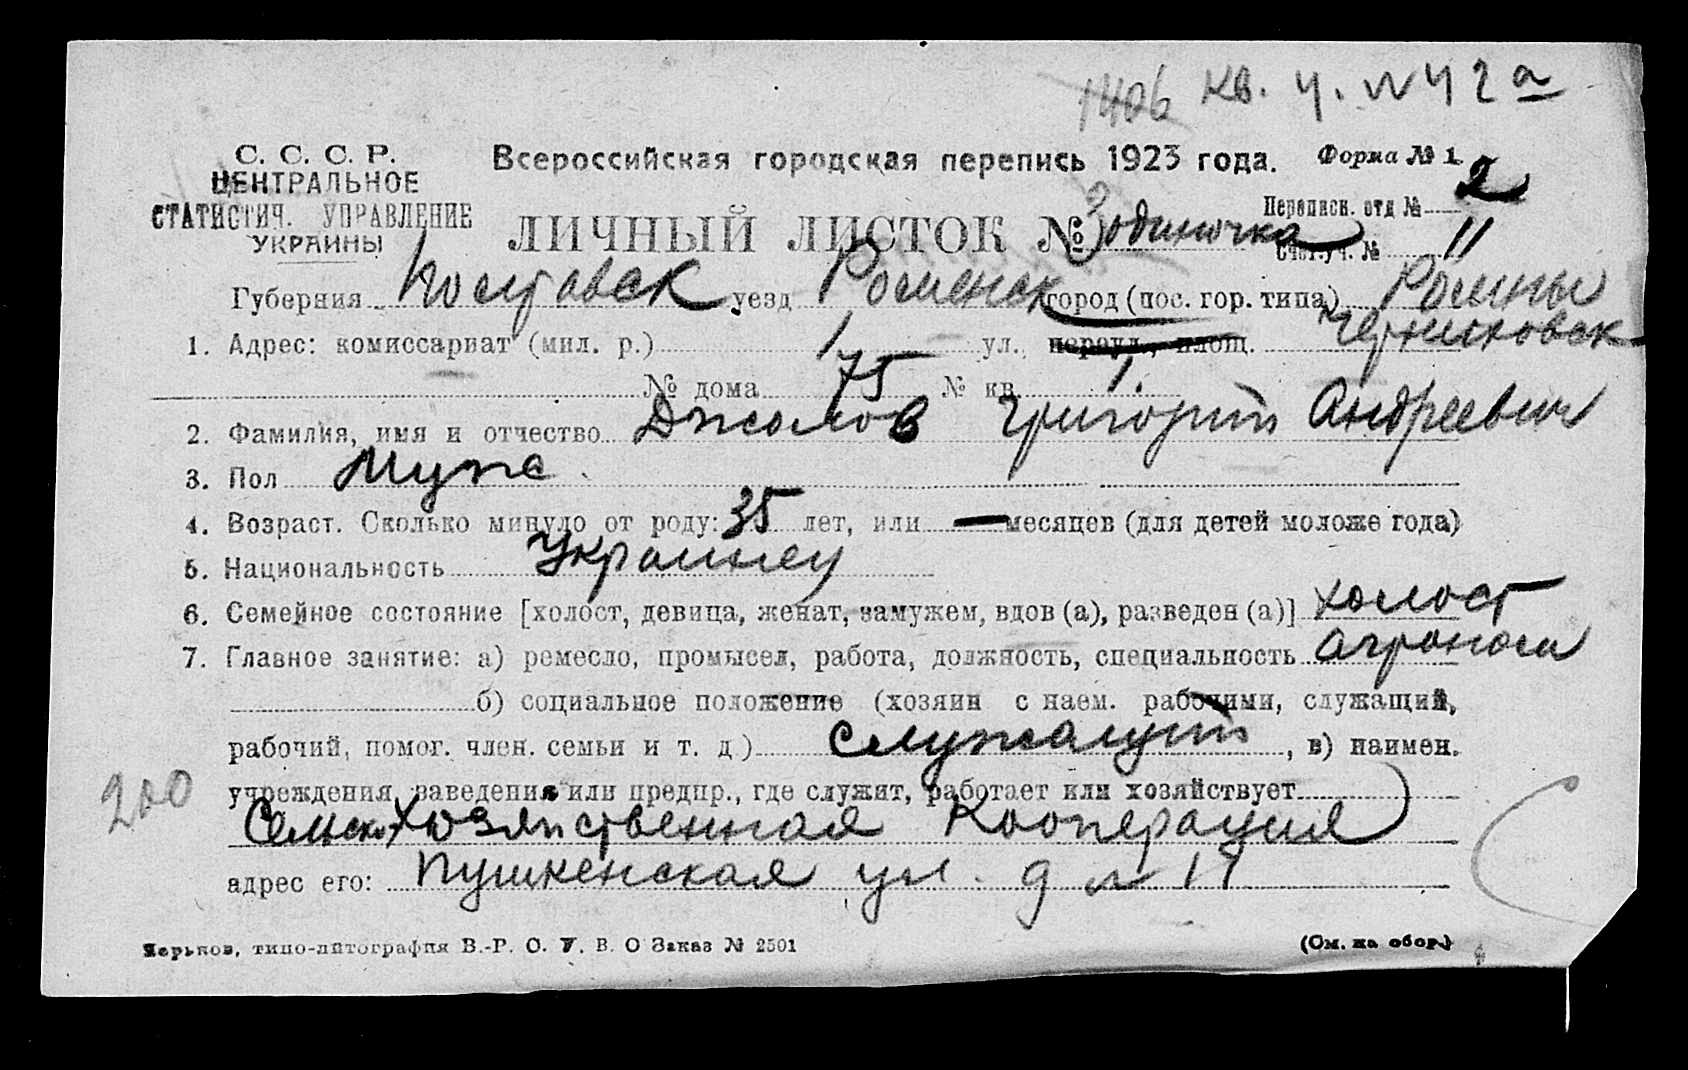 1406 кв. ч. № 42а
С. С. С. Р.
ЦЕНТРАЛЬНОЕ
СТАТИСТИЧ. УПРАВЛЕНИЕ
УКРАИНЫ
Всероссийская городская перепись 1923 года. Форма № 1.
Переписн. отд № 2
ЛИЧНЫЙ ЛИСТОК № 3 одиночка
Счет. уч. № 11
Губерния Полтавск уезд Роменск город (пос. гор. типа) Ромны
1. Адрес: комиссариат (мил. р.) 1 ул., переул., площ. Черниховск
№ дома 75 № кв. 1.
2. Фамилия, имя и отчество Джалов Григорий Андреевич
3. Пол Муже
4. Возраст. Сколько минуло от роду: 35 лет, или — месяцев (для детей моложе года)
5. Национальность Украинец
6. Семейное состояние [холост, девица, женат, замужем, вдов (а), разведен (а)] холост
7. Главное занятие: а) ремесло, промысел, работа, должность, специальность агроном
б) социальное положение (хозяин с наем. рабочими, служащий,
рабочий, помог. член. семьи и т. д.) Служащий, в) наимен.
учреждения, заведения или предпр., где служит, работает или хозяйствует
Сельскохозяйственная Кооперация
адрес его: Пушкенская ул. д № 17
200
Харьков, типо-литография В.-Р. О. У. В. О Заказ № 2501
(См. на обор.)